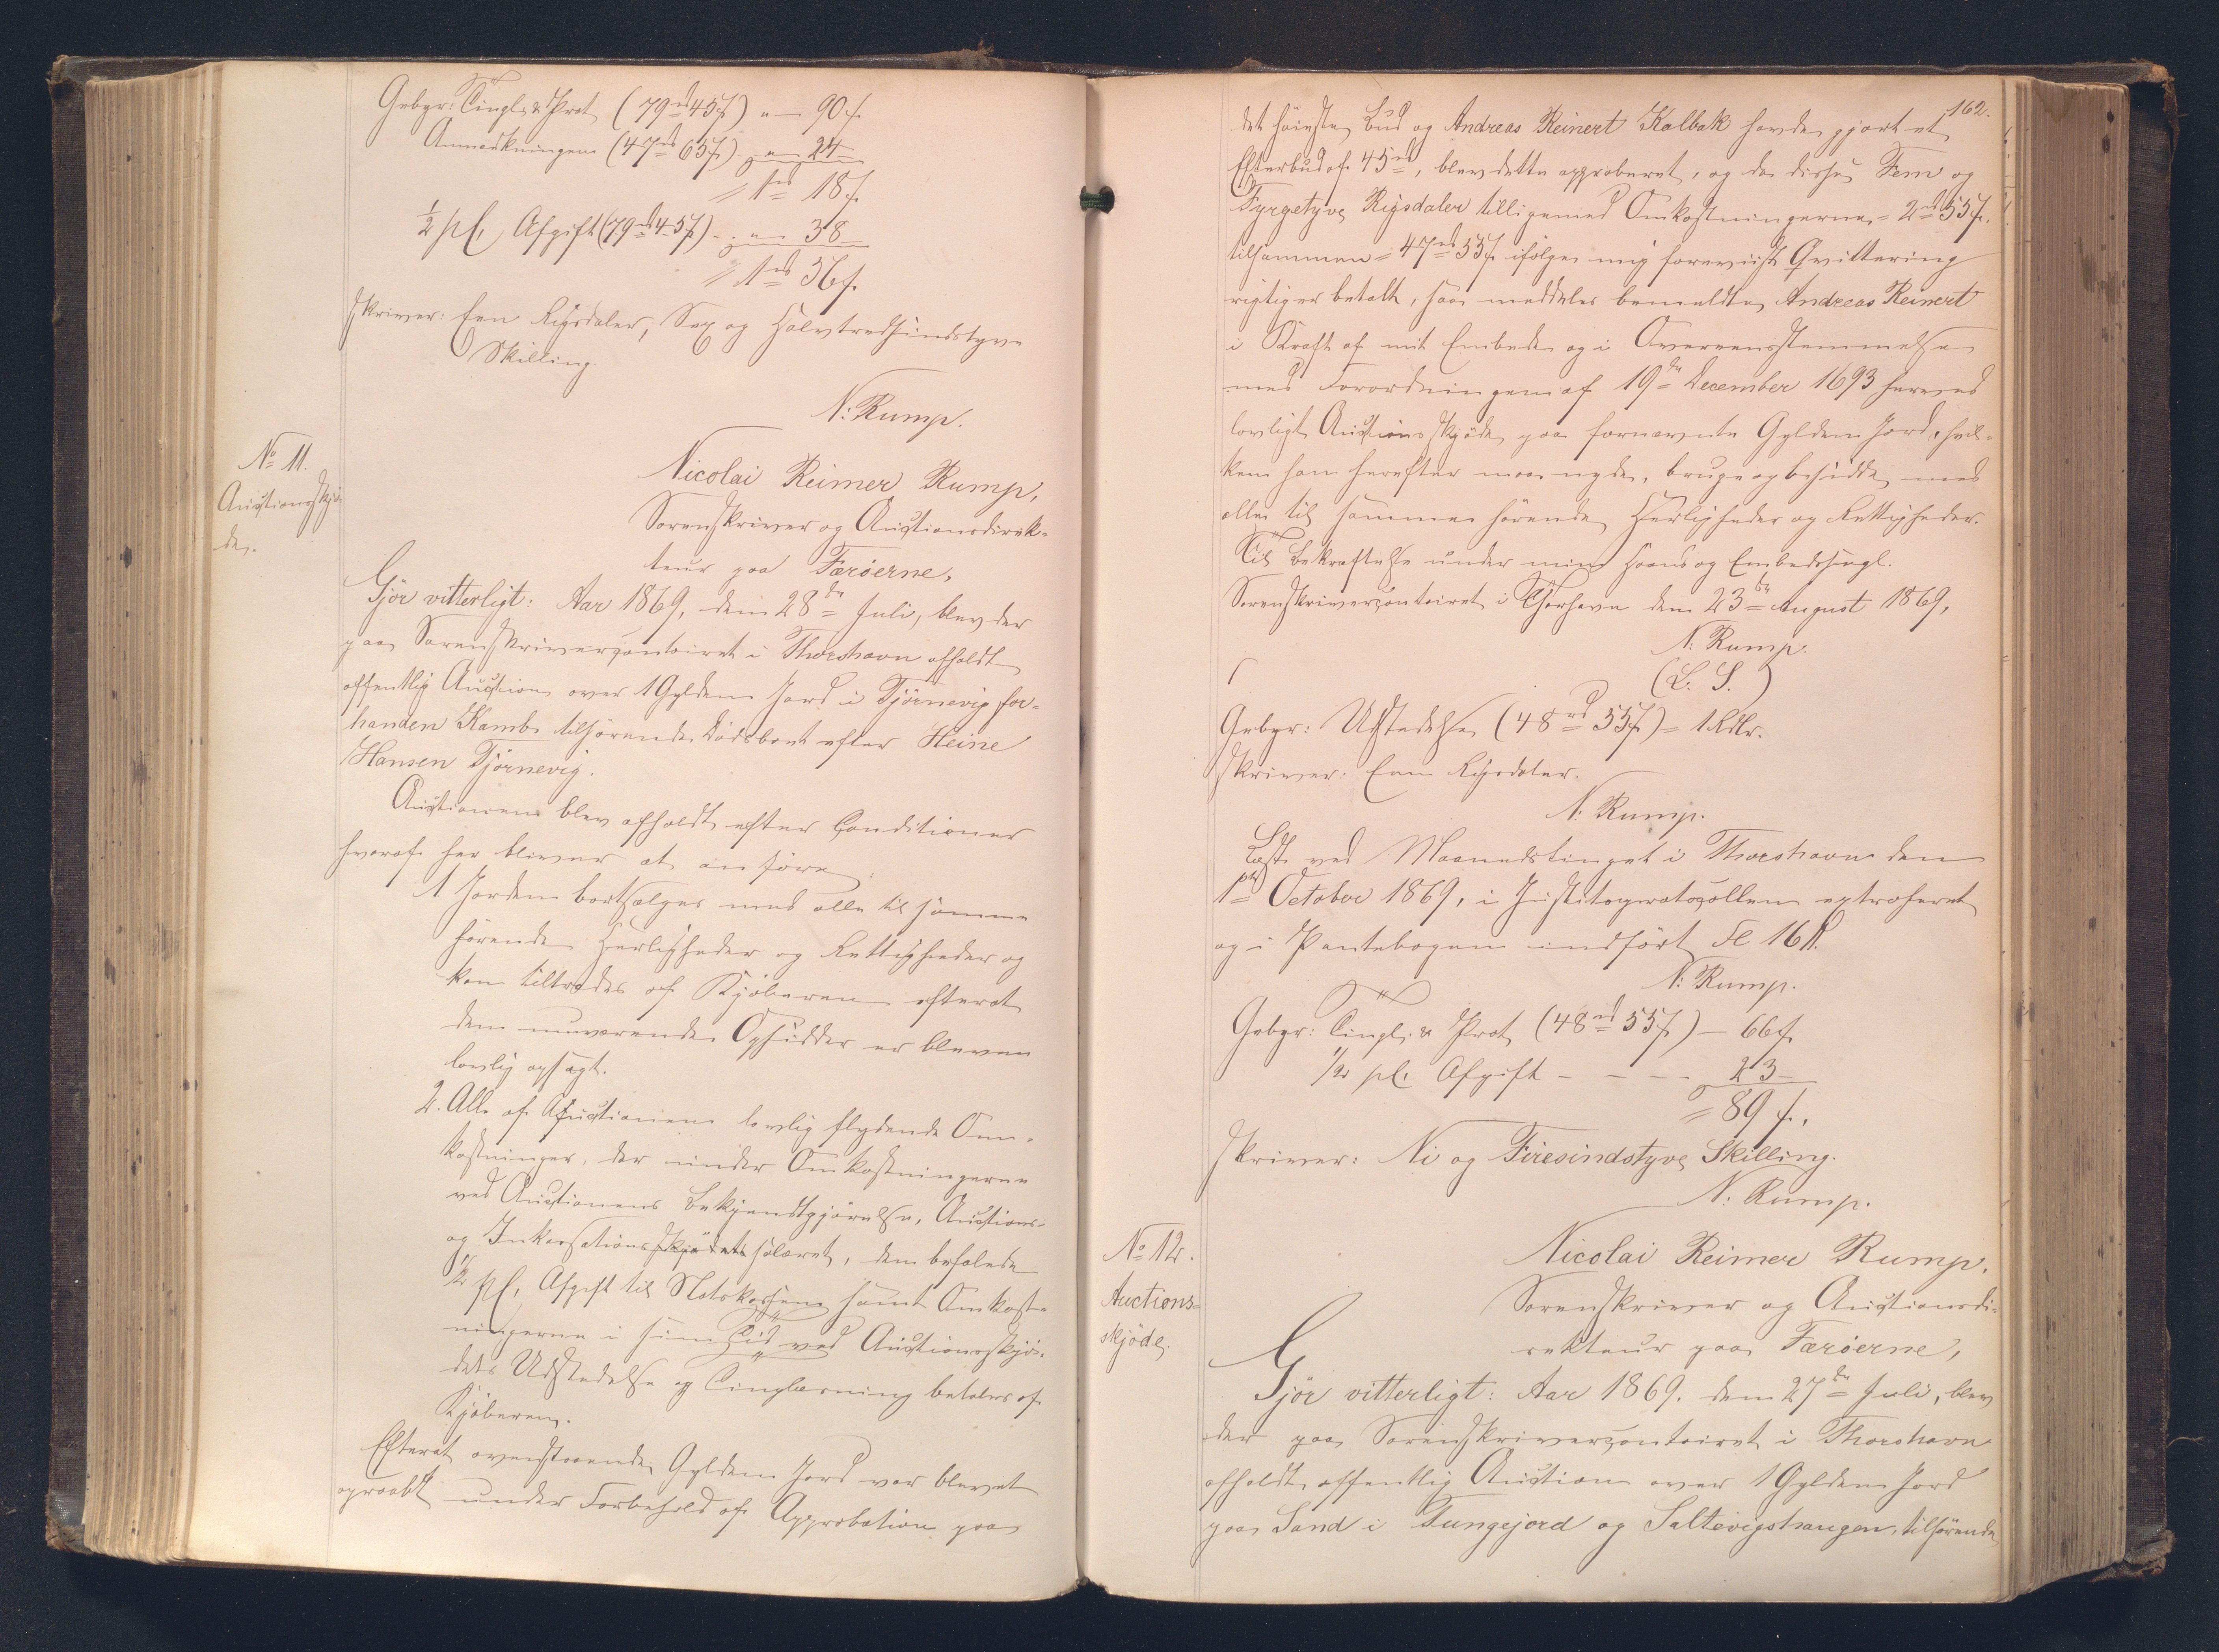 Gebyr: Tingl. & Prot. (79rd 45ſ) " — 90ſ.
Anmærkningen (47rd 65ſ) — " — 24 —
= 1rd 18ſ.
½ pC. Afgift (79rd 45ſ) - " — 38 —
= 1rd 56ſ.
skriver: Een Rigsdaler, Sex og Halvtredsindstyve
Skilling.
N: Rump.
No 11.
Auctionsskjö-
de.
Nicolai Reimer Rump,
Sorenskriver og Auctionsdirek-
teur paa Færöerne,
Gjör vitterligt: Aar 1869, den 28de Juli, blev der
paa Sorenskrivercontoiret i Thorshavn afholdt
offentlig Auction over 1 Gylden Jord i Tjörnevig for-
handen Kambe tilhörende Dödsboet efter Heine
Hansen Tjörnevig.
Auctionen blev afholdt efter Conditioner
hvoraf her bliver at anföre:
1 Jorden bortsælges med alle til samme
hörende Herligheder og Rettigheder og
kan tiltrædes af Kjöberen efterat
den nuværende Opsidder er bleven
lovlig opsagt.
2. Alle af Auctionen lovlig flydende Om-
kostninger, derunder Omkostningerne
ved Auctionens Bekjendtgjörelse, Auctions-
og Inkassationssalæret, den befalede
½ pC. Afgift til Statskassen samt Omkost-
ningerne i sin Tid ved Auctionsskjö-
dets Udstedelse og Tinglæsning betales af
Kjöberen.
Efterat ovenstaaende Gylden Jord var blevet
opraabt under Forbehold af Approbation paa
162.
det höieste Bud og Andreas Reinert Kalbak havde gjort et
Efterbud af 45rd, blev dette approberet, og da disse Fem og
Fyrgetyve Rigsdaler tilligemed Omkostningerne = 2rd 55ſ.
tilsammen = 47rd 55ſ ifölge mig foreviist Qvittering
rigtig er betalt, saa meddeles bemeldte Andreas Reinert
i Kraft af mit Embede og i Overeensstemmelse
med Forordningen af 19de December 1693 herved
lovligt Auctionsskjöde paa fornævnte Gylden Jord, hvil-
ken han herefter maa nyde, bruge og besidde med
alle til samme hörende Herligheder og Rettigheder.
Til Bekræftelse under min Haand og Embedssegl.
Sorenskrivercontoiret i Thorshavn den 23de August 1869,
N. Rump.
(L. S.)
Gebyr: Udstedelse (48rd 55ſ) = 1 Rdlr.
skriver: Een Rigsdaler.
N. Rump.
Læst ved Maanedstinget i Thorshavn den
1ste October 1869, i Justitsprotocollen extraheret
og i Pantebogen indfört Fol 161.
N: Rump.
Gebyr: Tingl. & Prot. (48rd 55ſ) — 66ſ.
½ pC. Afgift - - - - 23 —
= 89ſ.
skriver: Ni og Firesindstyve Skilling.
N: Rump.
No 12.
Auctions-
skjöde.
Nicolai Reimer Rump,
Sorenskriver og Auctionsdi-
rekteur paa Færöerne,
Gjör vitterligt: Aar 1869, den 27de Juli, blev
der paa Sorenskrivercontoiret i Thorshavn
afholdt offentlig Auction over 1 Gylden Jord
paa Sand i Tungejord og Saltevigshaugen, tilhörende